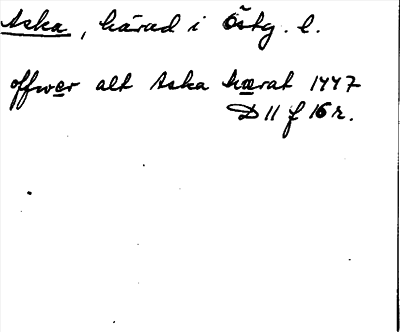 Aska, härad i Östg. l.
offwer alt Aska hærat 1447
D 11 f 16 r.